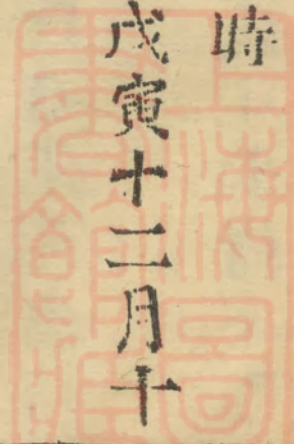 時
戊寅十二月十